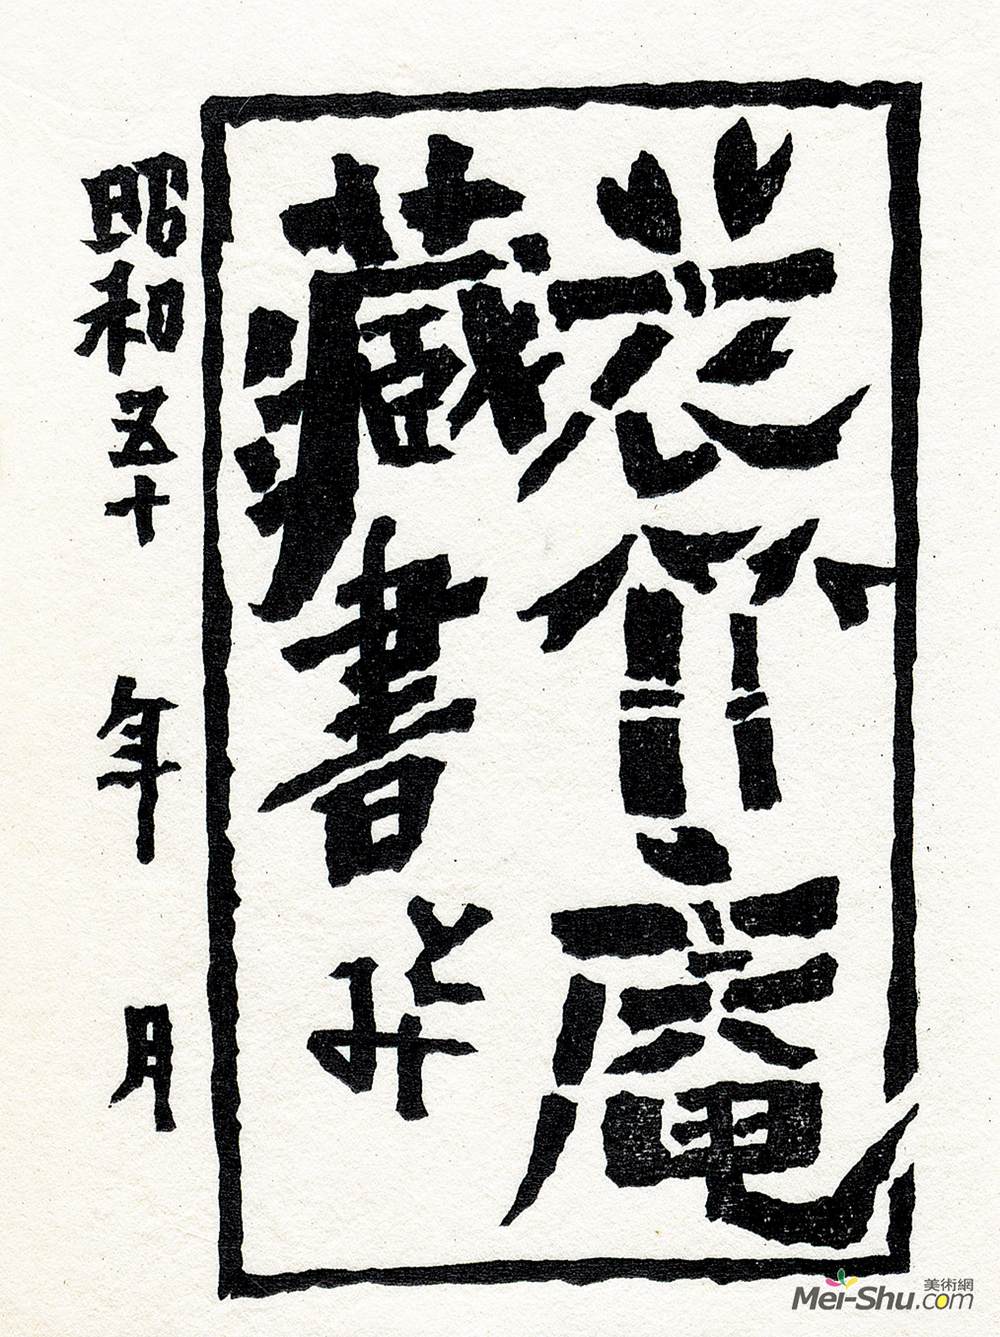 花竹庵
藏書とみ
昭和五十 年 月
美術網
Mei-Shu.com